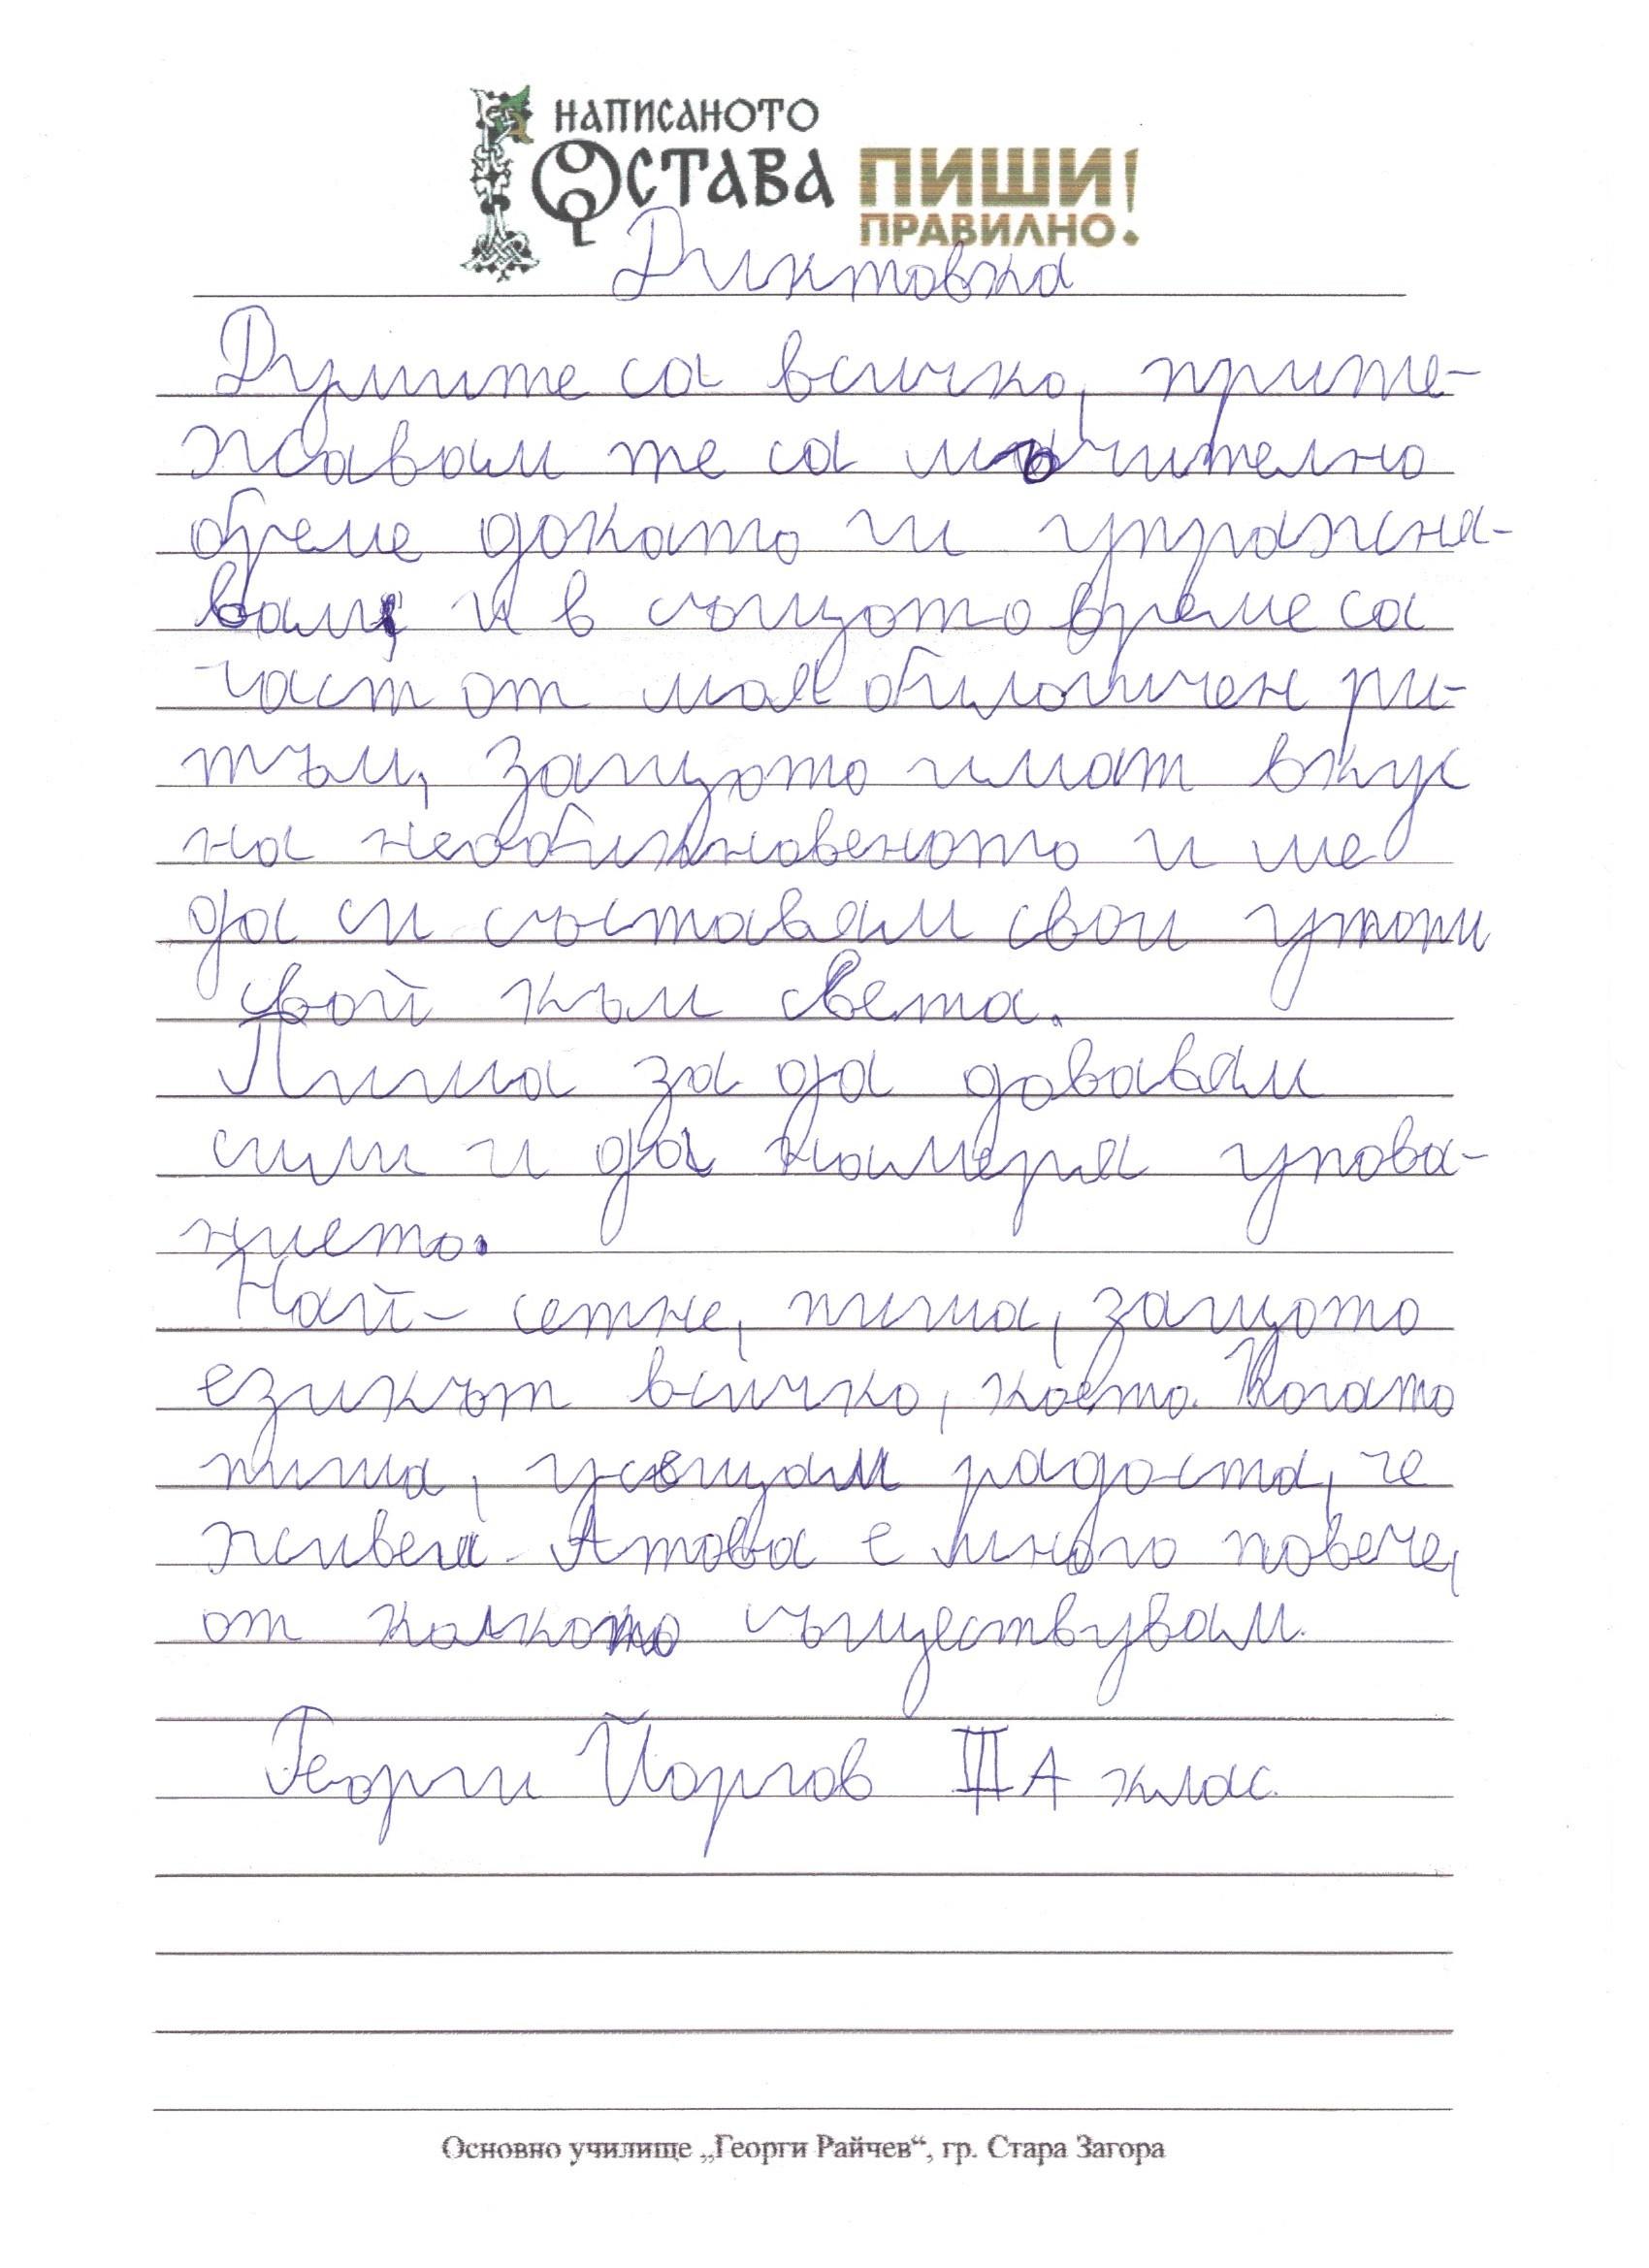 НАПИСАНОТО
ОСТАВА ПИШИ
ПРАВИЛНО!
Диктовка
Думите са всичко, прите-
жавам те са мъчително
бреме докато ги упражня-
вам, и в същото време са
част от моя биологичен ри-
тъм, защото имат вкус
на необикновеното и ме
да си съставям свои утопи
свой към света.
Пиша за да добавям
сили и да намеря упова-
нието.
Най-сетне, пиша, защото
езикът всичко, което. Когато
пиша, усещам радоста, че
живея. А това е много повече,
от колкото съществувам.
Георги Йоргов III А клас.
Основно училище „Георги Райчев“, гр. Стара Загора